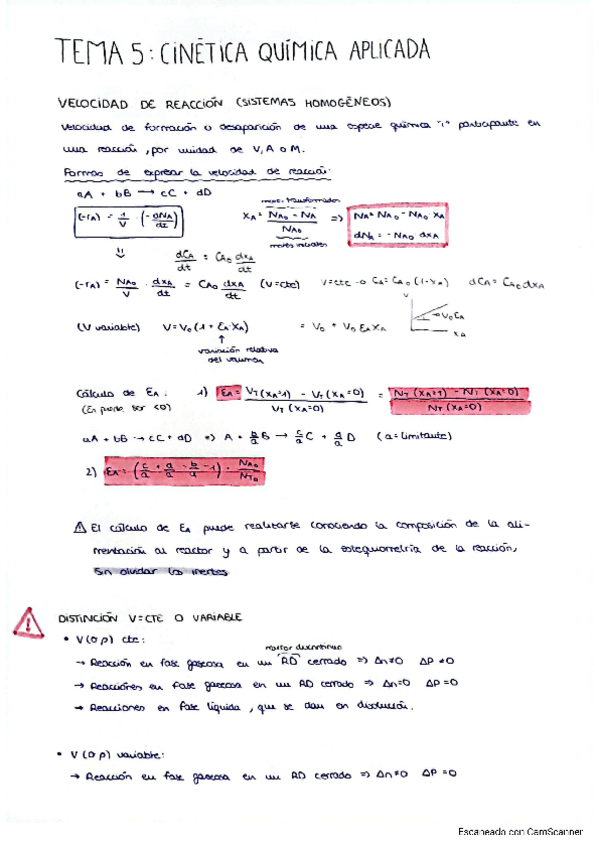 TEMA 5: CINÉTICA QUÍMICA APLICADA
VELOCIDAD DE REACCIÓN (SISTEMAS HOMOGÉNEOS)
Velocidad de formación o desaparición de una especie química "i" participante en
una reacción, por unidad de V, A o M.
Formas de expresar la velocidad de reacción:
aA + bB → cC + dD
(-rA) = 1/V · (-dNA/dt)
XA = (NA0 - NA)/NA0
moles iniciales
=> NA = NA0 - NA0 XA
dNA = - NA0 dXA
dCA/dt = CA0 dXA/dt
(-rA) = NA0/V · dXA/dt = CA0 dXA/dt (V=cte) V=cte → CA = CA0 (1-XA) dCA = CA0 dXA
V
V0 EA
XA
(V variable) V = V0 (1 + EA XA) = V0 + V0 EA XA
↑
variación relativa
del volumen
Cálculo de EA: 1) EA = (VT (XA=1) - VT (XA=0))/VT (XA=0) = (NT (XA=1) - NT (XA=0))/NT (XA=0)
(EA puede ser <0)
aA + bB → cC + dD => A + b/a B → c/a C + d/a D (a = limitante)
2) EA = (c/a + d/a - b/a - 1) · NA0/NT0
⚠ El cálculo de EA puede realizarse conociendo la composición de la ali-
mentación al reactor y a partir de la estequiometría de la reacción,
sin olvidar los inertes
DISTINCIÓN V=CTE O VARIABLE
• V (o ρ) cte:
reactor discontinuo
→ Reacción en fase gaseosa en un RD cerrado => Δn≠0 ΔP≠0
→ Reacciones en fase gaseosa en un RD cerrado => Δn=0 ΔP=0
→ Reacciones en fase líquida, que se dan en disolución.
• V (o ρ) variable:
→ Reacción en fase gaseosa en un RD cerrado => Δn≠0 ΔP=0
Escaneado con CamScanner